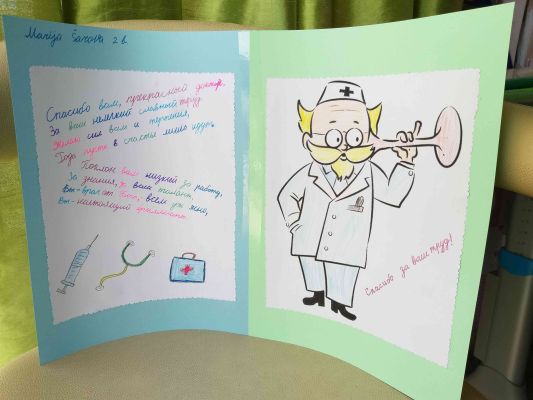 Marija Šarova 2b
Спасибо вам, прекрасный доктор,
За ваш нелёгкий славный труд
Желаю сил вам и терпения,
Года пусть в счастье мимо идут.
Поклон вам низкий за работу,
За знания, за ваш талант,
Вы-врач от Бога, всем уж ясно,
Вы-настоящий бриллиант.
Спасибо за ваш труд!